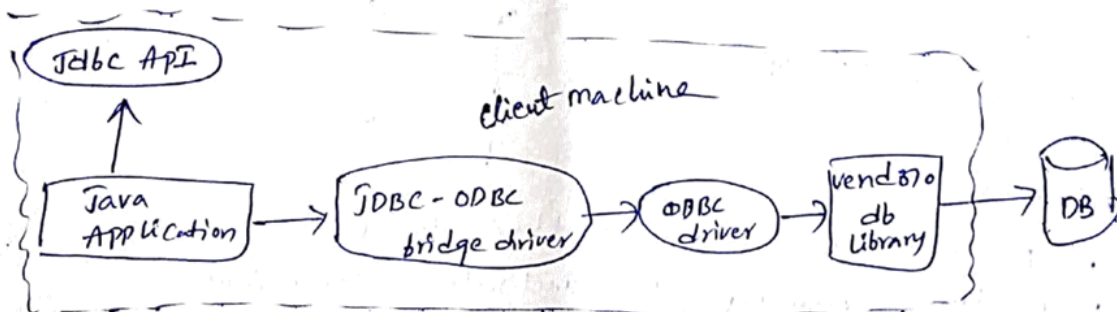 Jdbc API
client machine
Java
Application
JDBC - ODBC
bridge driver
ODBC
driver
db
Library
DB